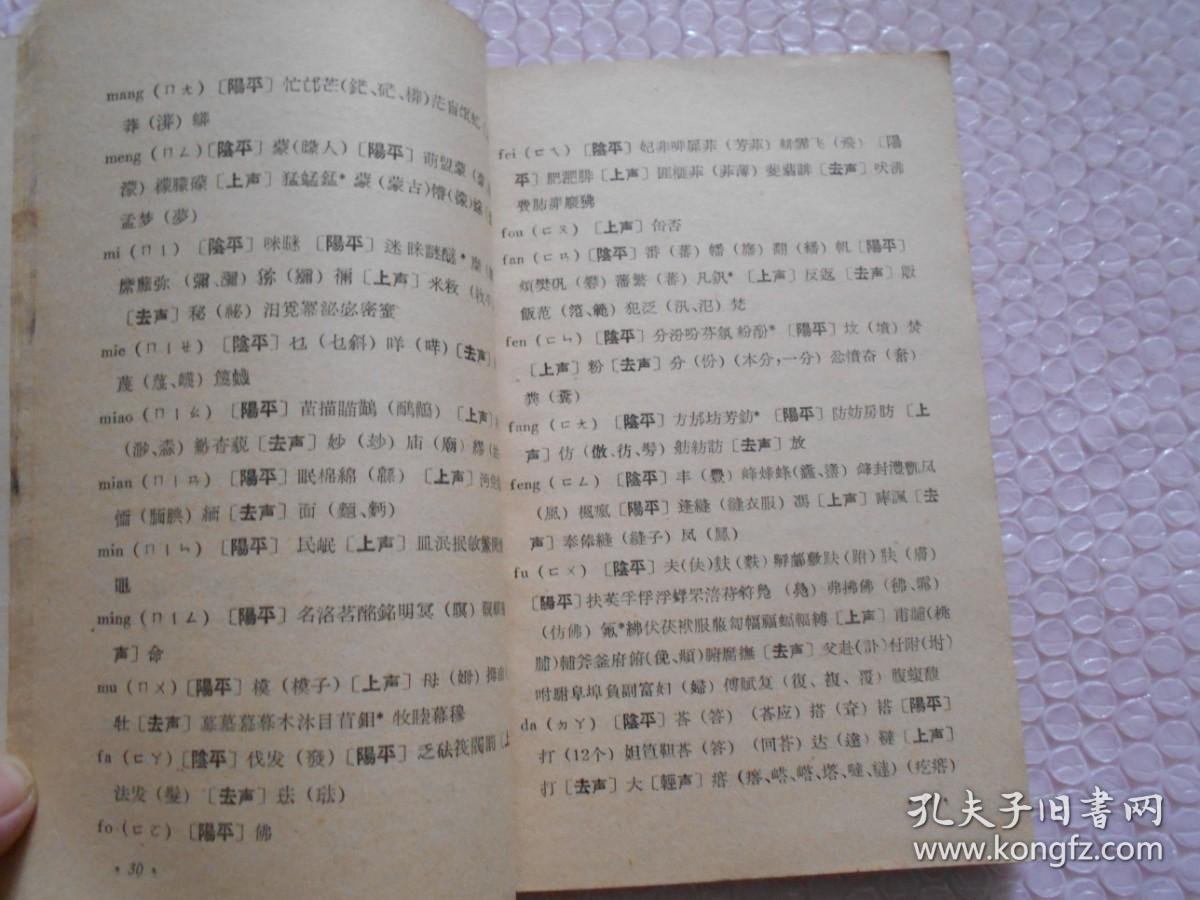 mang (ㄇㄤ) [陽平] 忙邙芒(鋩、硭、)茫盲
莽 (漭) 蟒
meng (ㄇㄥ) [陰平] 蒙 (矇人) [陽平] 萌盟蒙
濛) 檬朦礞 [上声] 猛蜢錳* 蒙 (蒙古)
孟梦 (夢)
mi (ㄇㄧ) [陰平] 咪瞇 [陽平] 迷眯謎醚*
糜蘼弥 (彌、瀰) 猕 (獼) 禰 [上声] 米敉
[去声] 秘 (祕) 汨覓冪泌宓密蜜
mie (ㄇㄧㄝ) [陰平] 乜 (乜斜) 咩 (哶) [去声]
蔑 (衊) 篾蠛
miao (ㄇㄧㄠ) [陽平] 苗描瞄鶓 (鴯鶓) [上声]
(渺、淼) 緲杳藐 [去声] 妙 (玅) 庙 (廟) 繆
mian (ㄇㄧㄢ) [陽平] 眠棉綿 [上声] 沔
(靦腆) 緬 [去声] 面 (麵、麪)
min (ㄇㄧㄣ) [陽平] 民岷 [上声] 皿泯抿敏
黽
ming (ㄇㄧㄥ) [陽平] 名洺茗酩銘明冥 (暝)
声] 命
mu (ㄇㄨ) [陽平] 模 (模子) [上声] 母 (姆) 拇
牡 [去声] 墓慕木沐目苜鉬* 牧睦幕穆
fa (ㄈㄚ) [陰平] 伐发 (發) [陽平] 乏砝筏閥
法发 (髮) [去声] 珐 (琺)
fo (ㄈㄛ) [陽平] 佛
30
fei (ㄈㄟ) [陰平] 妃非啡扉菲 (芳菲) 霏飞 (飛) [陽
平] 肥淝腓 [上声] 匪榧菲 (菲薄) 斐翡誹 [去声] 吠沸
費肺痱廢狒
fou (ㄈㄡ) [上声] 缶否
fan (ㄈㄢ) [陰平] 番 (蕃) 幡 (旛) 翻 (繙) 帆 [陽平]
煩樊矾 (礬) 藩繁 (蕃) 凡釩* [上声] 反返 [去声] 販
飯范 (笵、範) 犯泛 (汎、氾) 梵
fen (ㄈㄣ) [陰平] 分汾吩芬氛紛酚* [陽平] 坟 (墳) 焚
[上声] 粉 [去声] 分 (份) (本分,一分) 忿憤奋 (奮)
粪 (糞)
fang (ㄈㄤ) [陰平] 方邡坊芳鈁* [陽平] 防妨房肪 [上
声] 仿 (倣、彷、髣) 舫紡訪 [去声] 放
feng (ㄈㄥ) [陰平] 丰 (豐) 峰烽蜂 (蠭、) 鋒封灃酆风
(風) 楓瘋 [陽平] 逢縫 (縫衣服) 馮 [上声] 唪諷 [去
声] 奉俸縫 (縫子) 凤 (鳳)
fu (ㄈㄨ) [陰平] 夫 (伕) 麸 (麩) 孵鄜敷趺 (跗) 肤 (膚)
[陽平] 扶芙孚俘浮蜉罘涪苻符凫 (鳧) 弗拂佛 (彿、髴)
(仿佛) 氟* 紼伏茯袱服菔匐幅福蝠輻縛 [上声] 甫脯 (桃
脯) 輔斧釜府俯 (俛、頫) 腑腐撫 [去声] 父赴 (訃) 付附 (坿)
咐駙阜埠負副富妇 (婦) 傅賦复 (復、複、覆) 腹蝮馥
da (ㄉㄚ) [陰平] 荅 (答) (荅应) 搭 (耷) 褡 [陽平]
打 (12个) 妲笪靼荅 (答) (回荅) 达 (達) 韃 [上声]
打 [去声] 大 [輕声] 瘩 (疙瘩)
孔夫子旧书网
www.kongfz.com